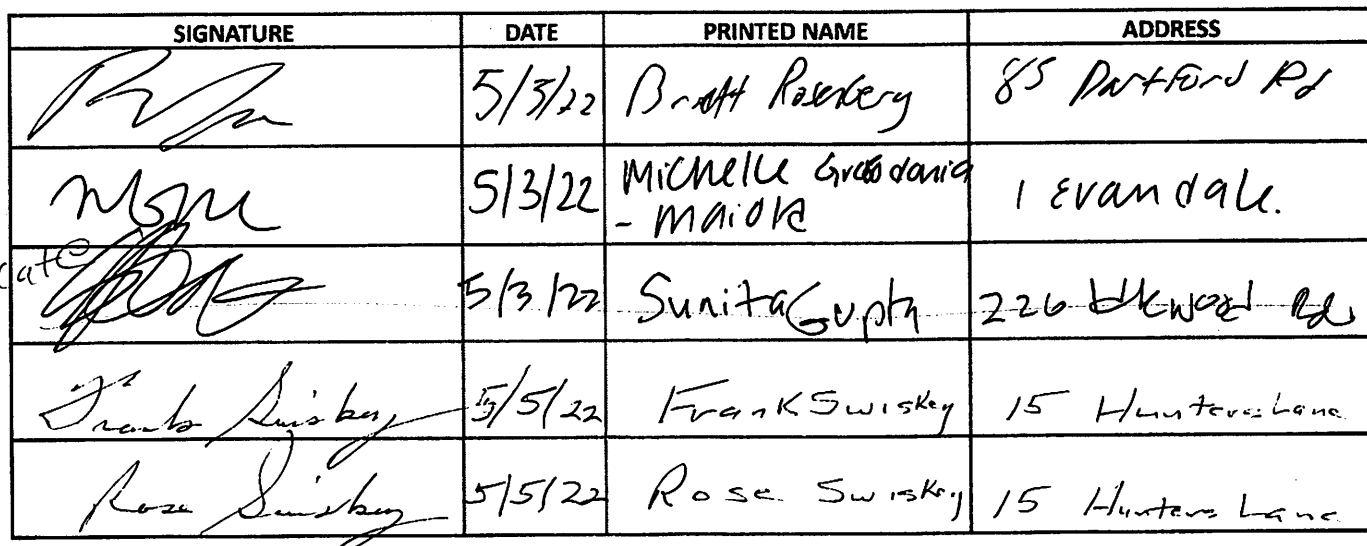 SIGNATURE DATE PRINTED NAME ADDRESS
5/3/22 Brett Rosenberg 85 Dartford Rd
5/3/22 Michelle
- Maiola 1 Evandale.
5/3/22 Sunita Gupta 226 Rd
Frank Swiskey 5/5/22 Frank Swiskey 15 Hunters Lane
Rose Swiskey 5/5/22 Rose Swiskey 15 Hunters Lane